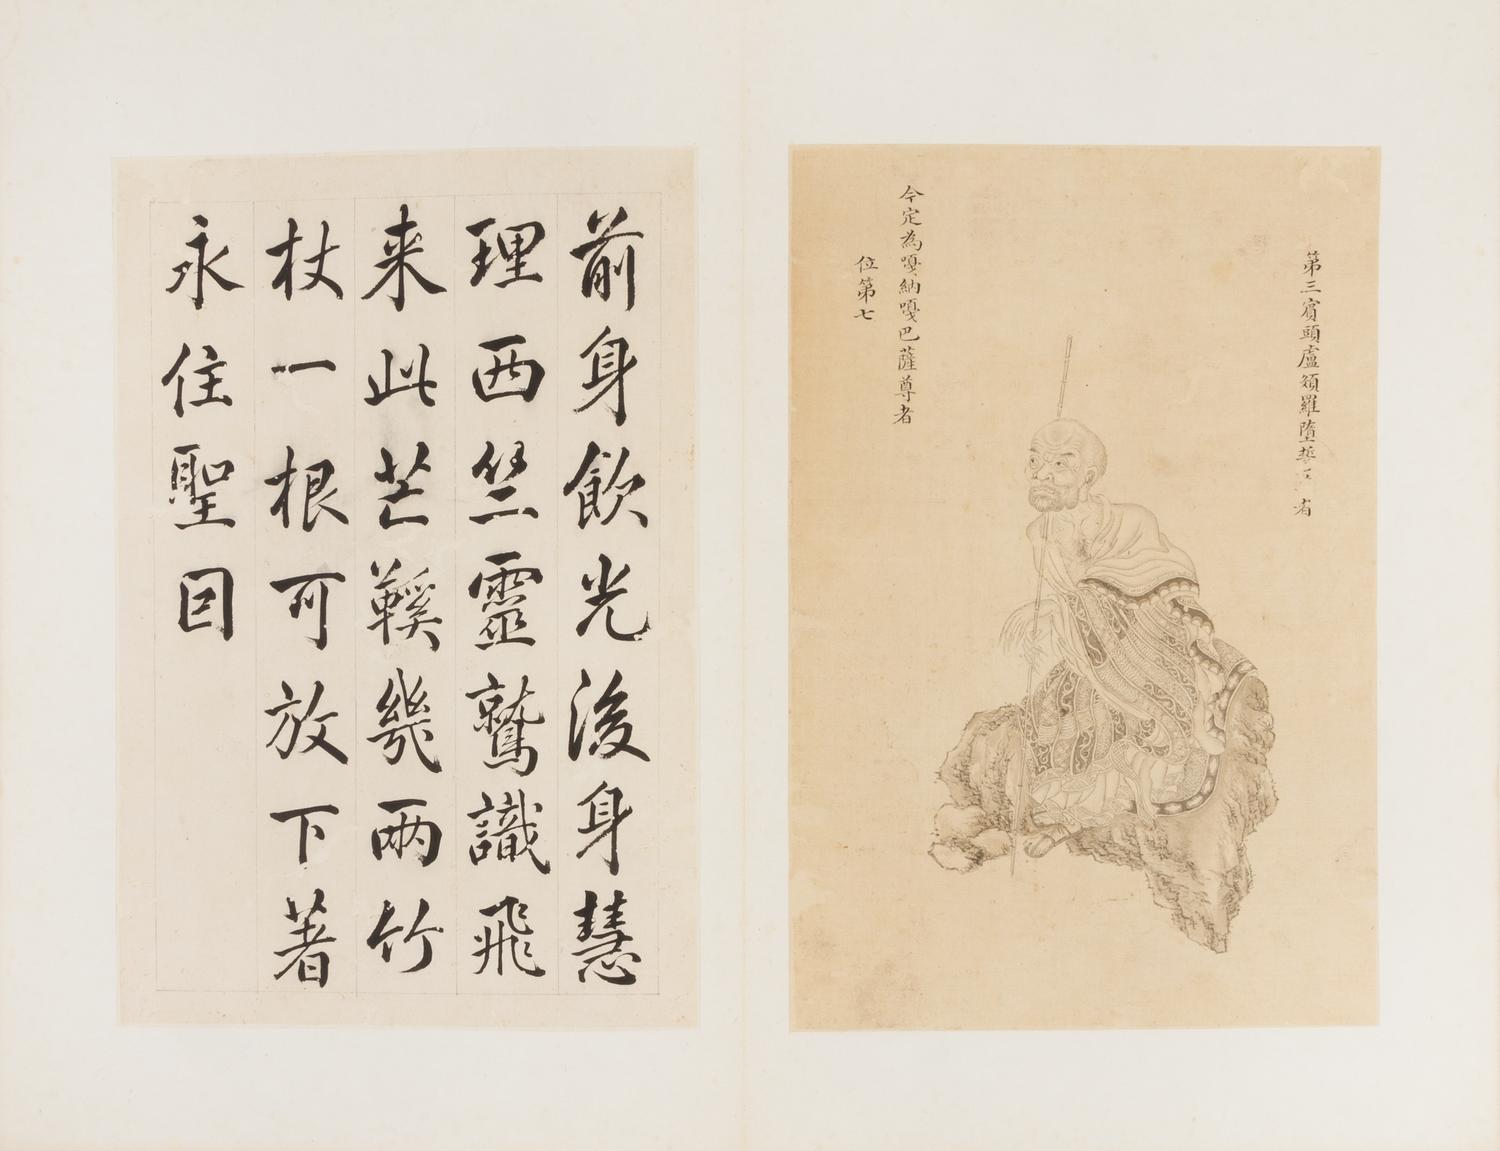 第三賓頭盧頗羅墮誓
者
今定為嘎納嘎巴薩尊者
位第七
前身飲光後身慧
理西竺靈鷲識飛
来此芒鞵幾兩竹
杖一根可放下著
永住聖因